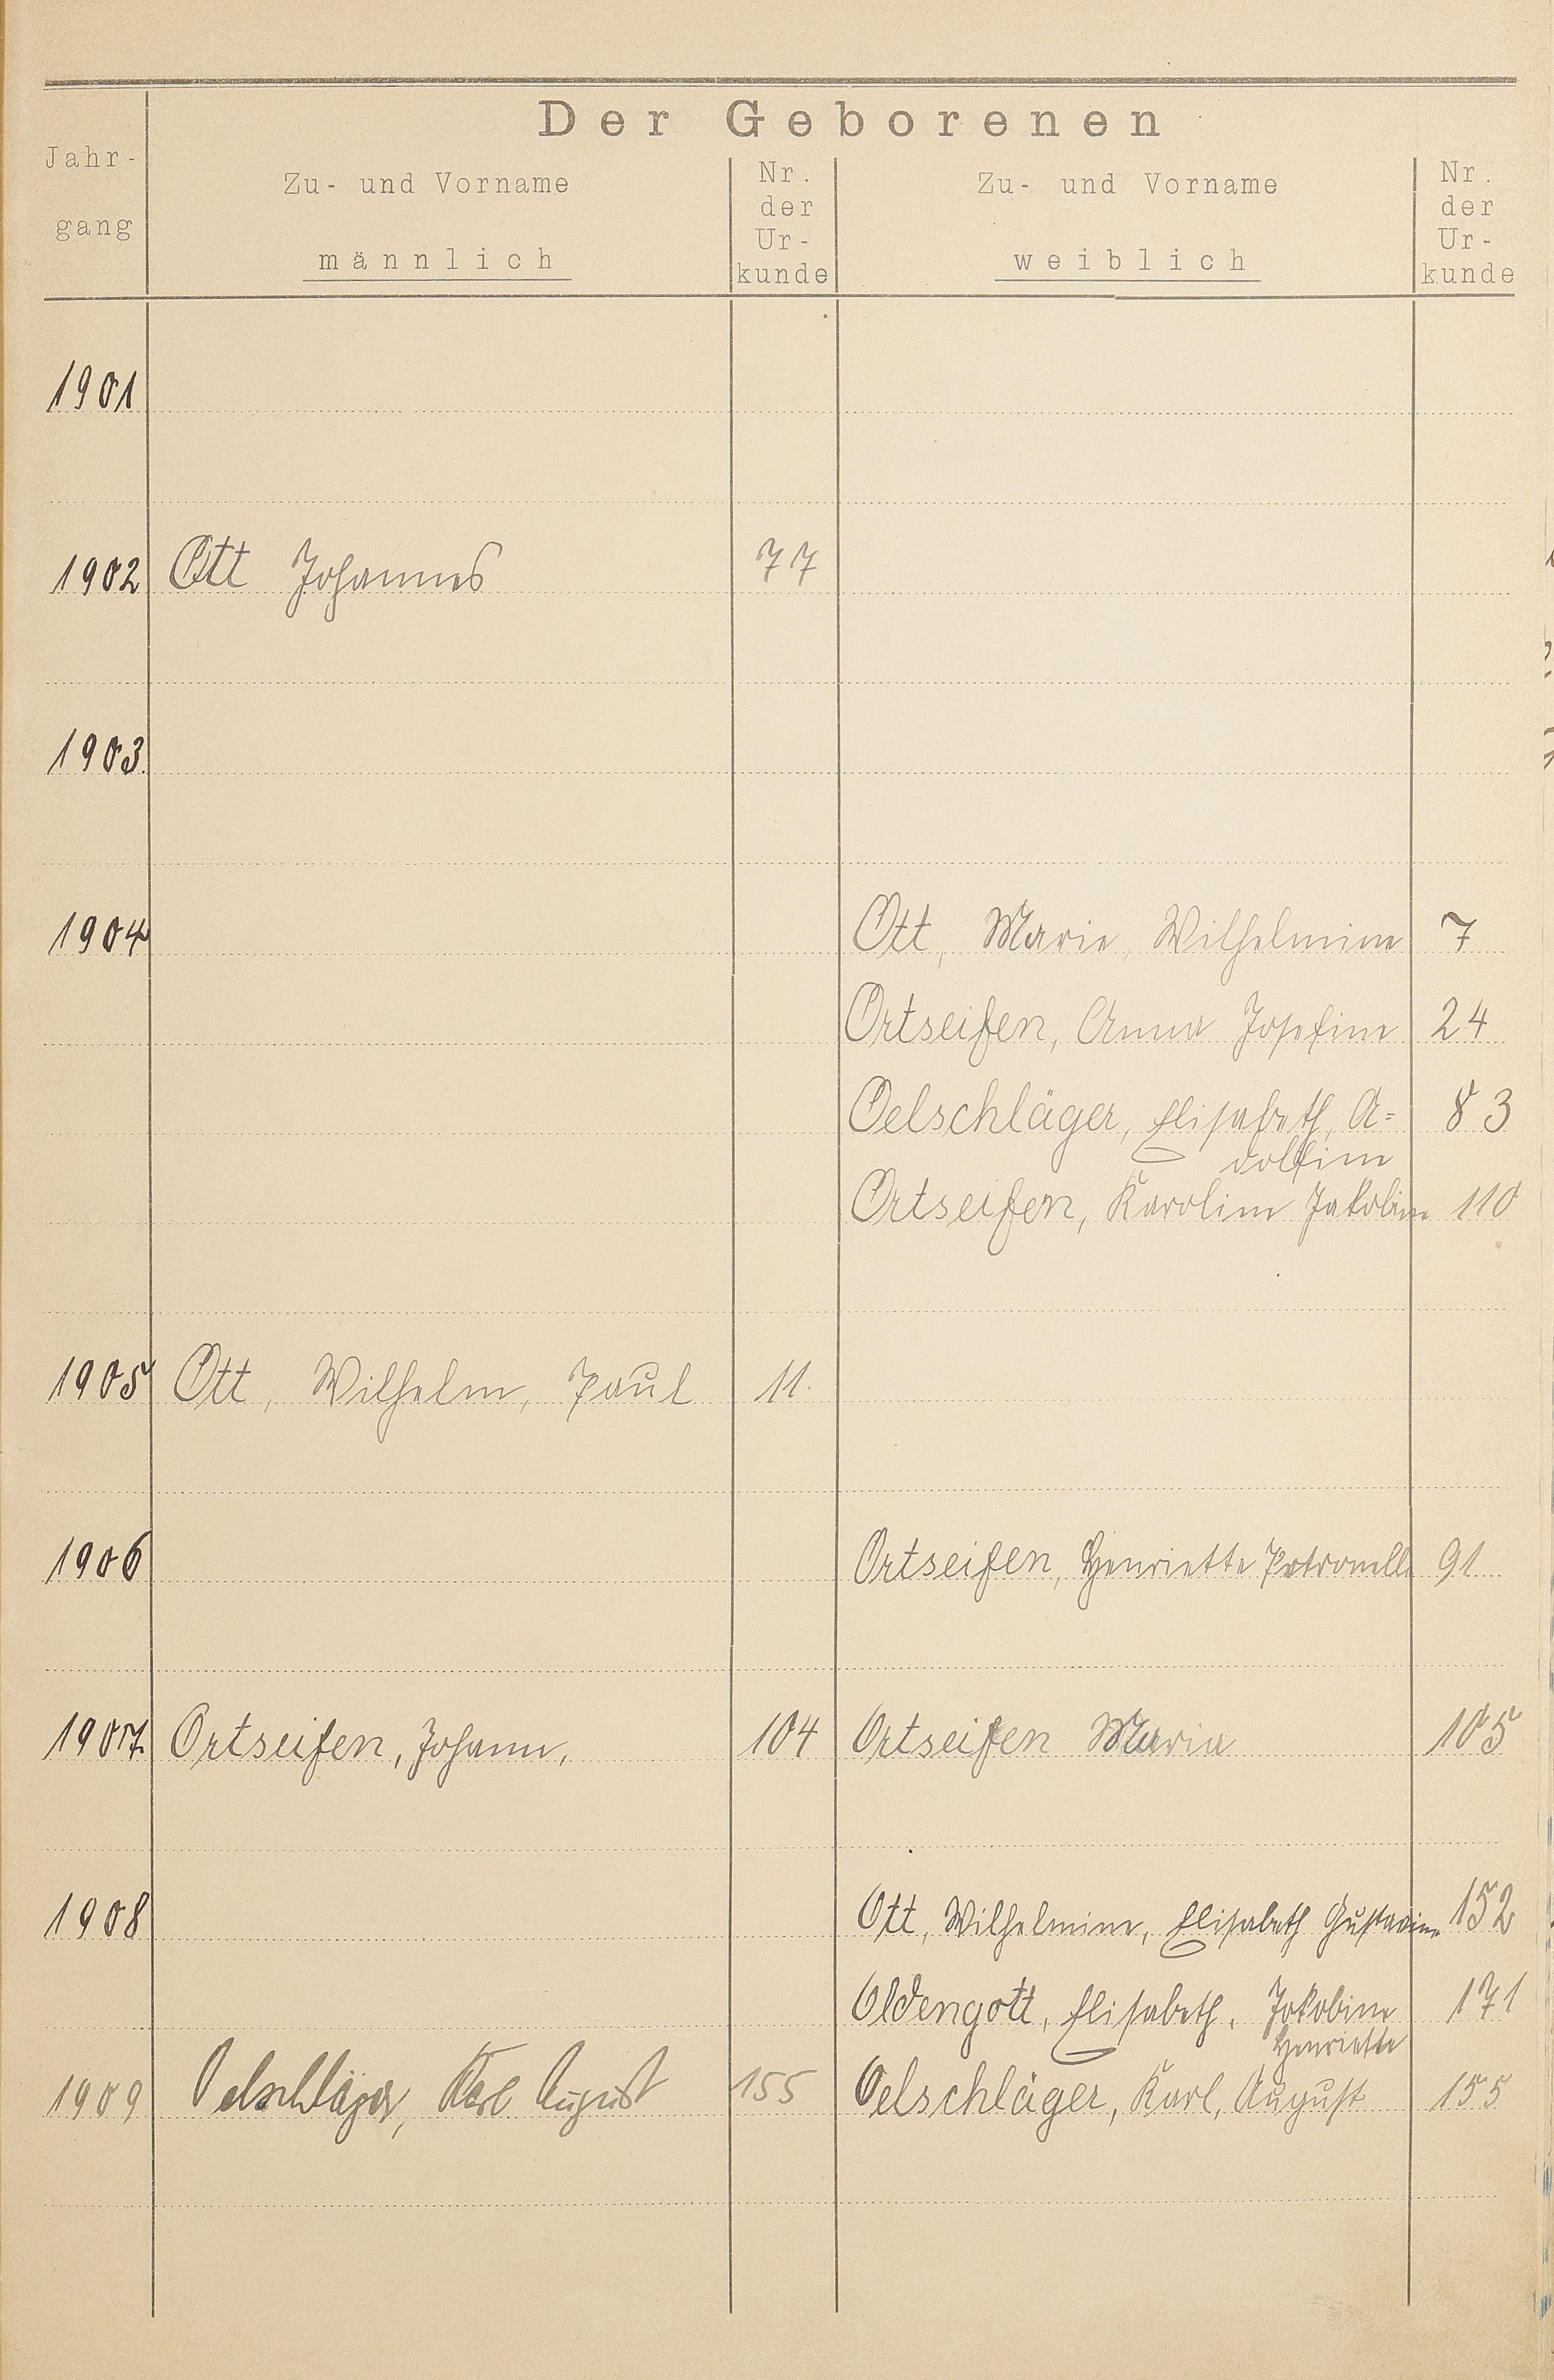 Der Geborenen
Jahr-
gang
Zu- und Vorname
männlich
Nr.
der
Ur-
kunde
Zu- und Vorname
weiblich
Nr.
der
Ur-
kunde
1901
1902 Ott Johannes 77
1903.
1904 Ott, Marie, Wilhelmine 7
Ortseifen, Anna Josefine 24
Oelschläger, Elisabeth, A= 83
dolfine
Ortseifen, Karoline Jakobine 110
1905 Ott, Wilhelm, Paul 11.
1906 Ortseifen, Henriette Petronella 91
1907. Ortseifen, Johann, 104 Ortseifen Maria 105
1908 Ott, Wilhelmine, Elisabeth Gustavine 152
Oldengott, Elisabeth, Jakobine 171
Henriette
1909 Oelschläger, Karl August 155 Oelschläger, Karl, August 155